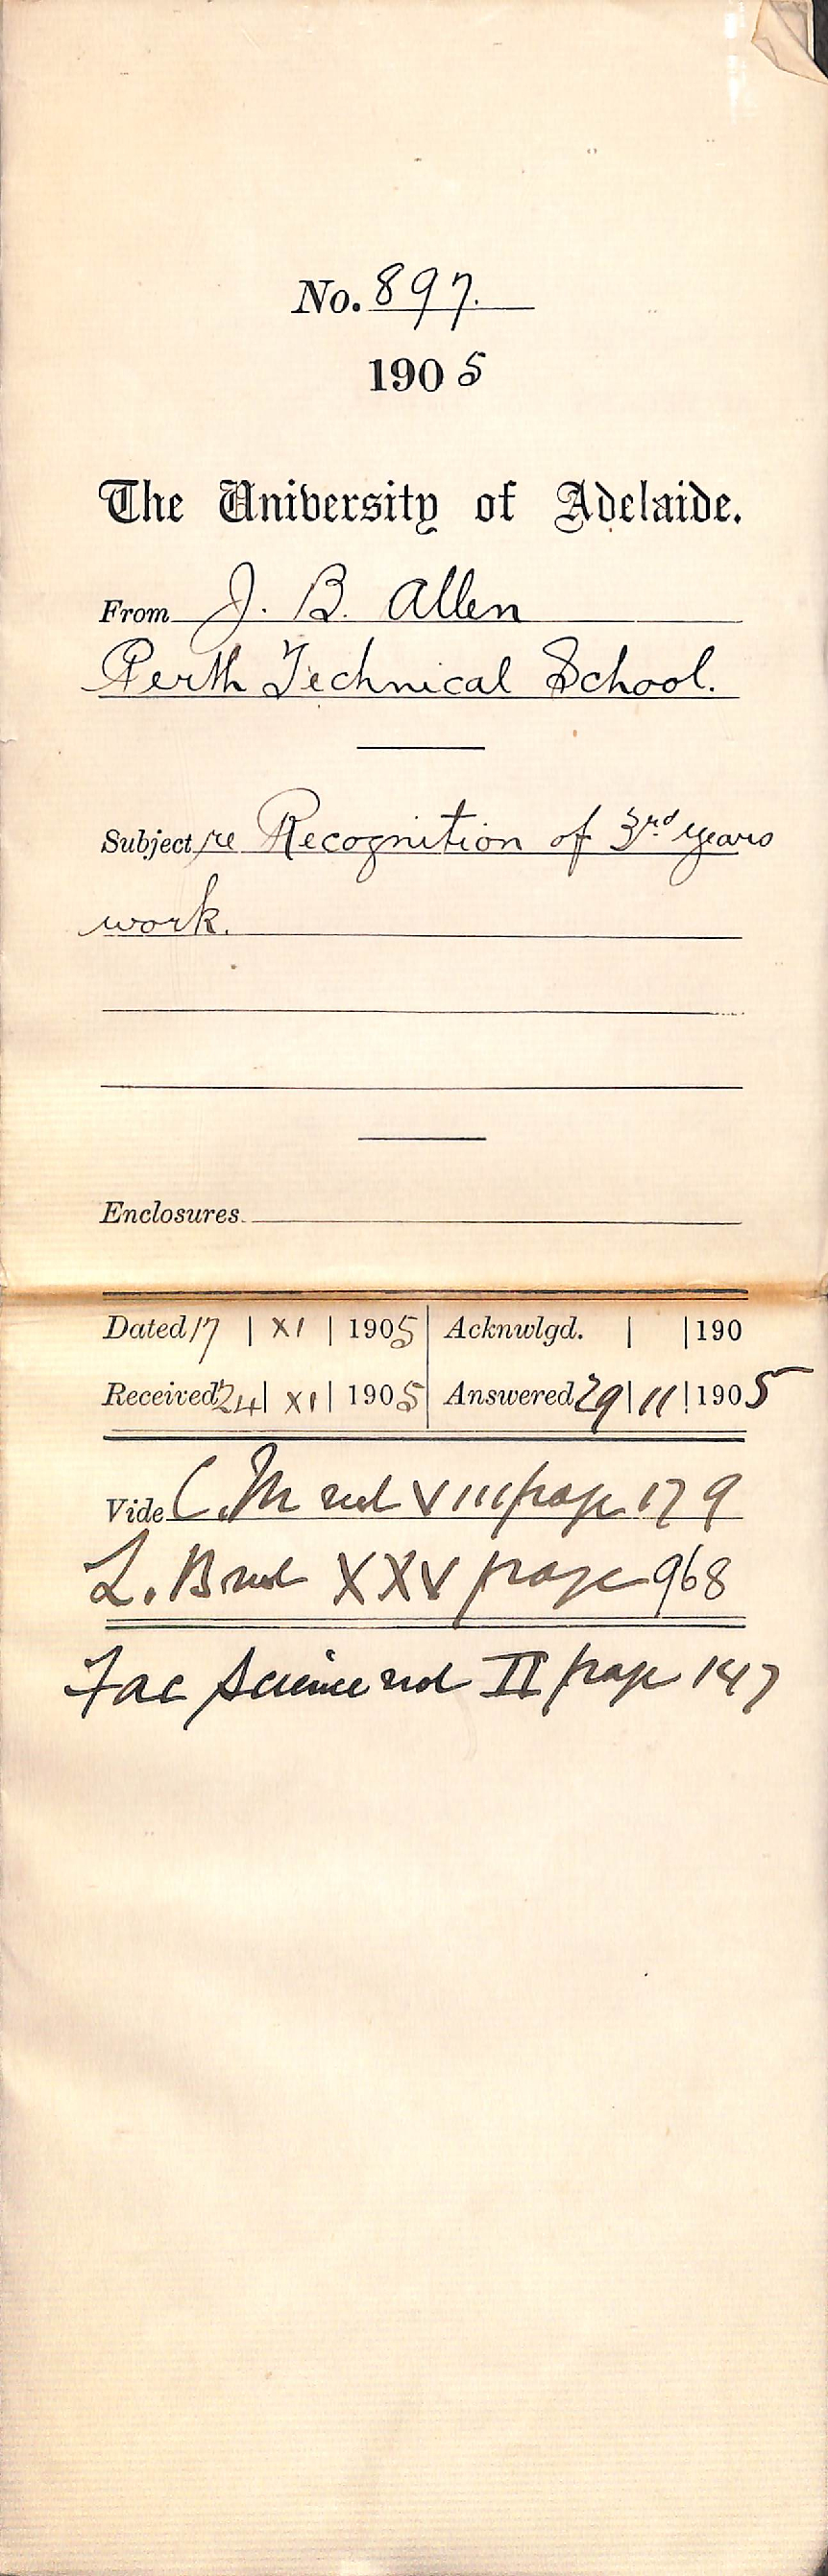 No. 897.
1905
The University of Adelaide.
From J. B. Allen
Perth Technical School.
Subject re Recognition of 3rd years
work.
Enclosures
Dated 17 | XI | 1905 Acknwlgd. | | 190
Received 24 | XI | 1905 Answered 29 | 11 | 1905
Vide C.M vol VIII page 179
L. B vol XXV page 968
Fac Science vol II page 147